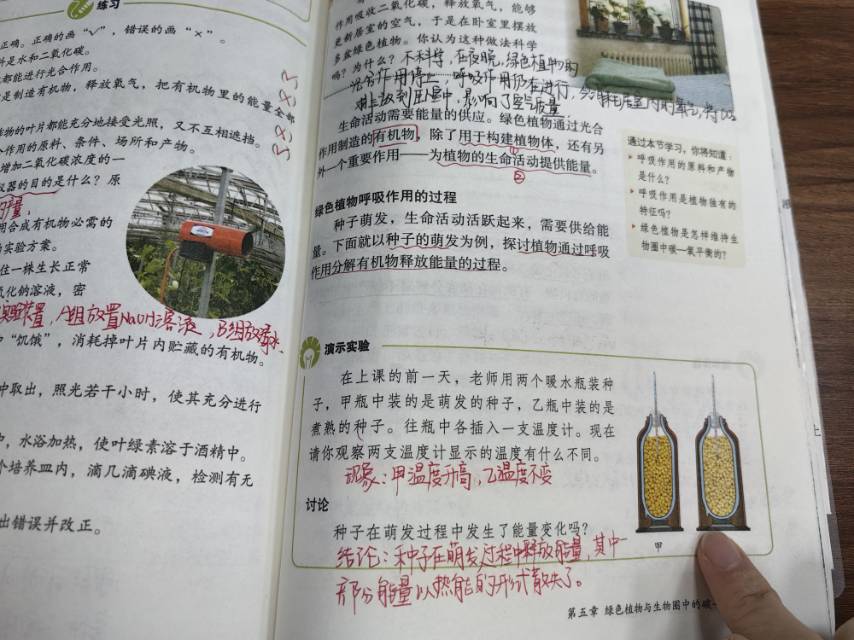 练习
正确。正确的画“√”，错误的画“×”。
料是水和二氧化碳。
都能进行光合作用。
是制造有机物，释放氧气，把有机物里的能量全部
植物的叶片都能充分地接受光照，又不互相遮挡。
合作用的原料、条件、场所和产物。
增加二氧化碳浓度的一
仪器的目的是什么？原
用合成有机物必需的
实验方案。
住一株生长正常
氧化钠溶液，密
装置，A组放置NaOH溶液，B组放清水.
“饥饿”，消耗掉叶片内贮藏的有机物。
中取出，照光若干小时，使其充分进行
中，水浴加热，使叶绿素溶于酒精中。
个培养皿内，滴几滴碘液，检测有无
出错误并改正。
作用吸收二氧化碳，释放氧气，能够
更新居室的空气，于是在卧室里摆放
多盆绿色植物。你认为这种做法科学
吗？为什么？不科学，在夜晚，绿色植物的
光合作用停止，呼吸作用仍在进行，
生命活动需要能量的供应。绿色植物通过光合
作用制造的有机物，除了用于构建植物体，还有另
外一个重要作用——为植物的生命活动提供能量。
①
②
绿色植物呼吸作用的过程
种子萌发，生命活动活跃起来，需要供给能
量。下面就以种子的萌发为例，探讨植物通过呼吸
作用分解有机物释放能量的过程。
通过本节学习，你将知道：
呼吸作用的原料和产物
是什么？
呼吸作用是植物独有的
特征吗？
绿色植物是怎样维持生
物圈中碳—氧平衡的？
演示实验
在上课的前一天，老师用两个暖水瓶装种
子，甲瓶中装的是萌发的种子，乙瓶中装的是
煮熟的种子。往瓶中各插入一支温度计。现在
请你观察两支温度计显示的温度有什么不同。
现象：甲温度升高，乙温度不变
讨论
种子在萌发过程中发生了能量变化吗？
结论：种子在萌发过程中释放能量，其中一
部分能量以热能的形式散失了。
甲
第五章 绿色植物与生物圈中的碳